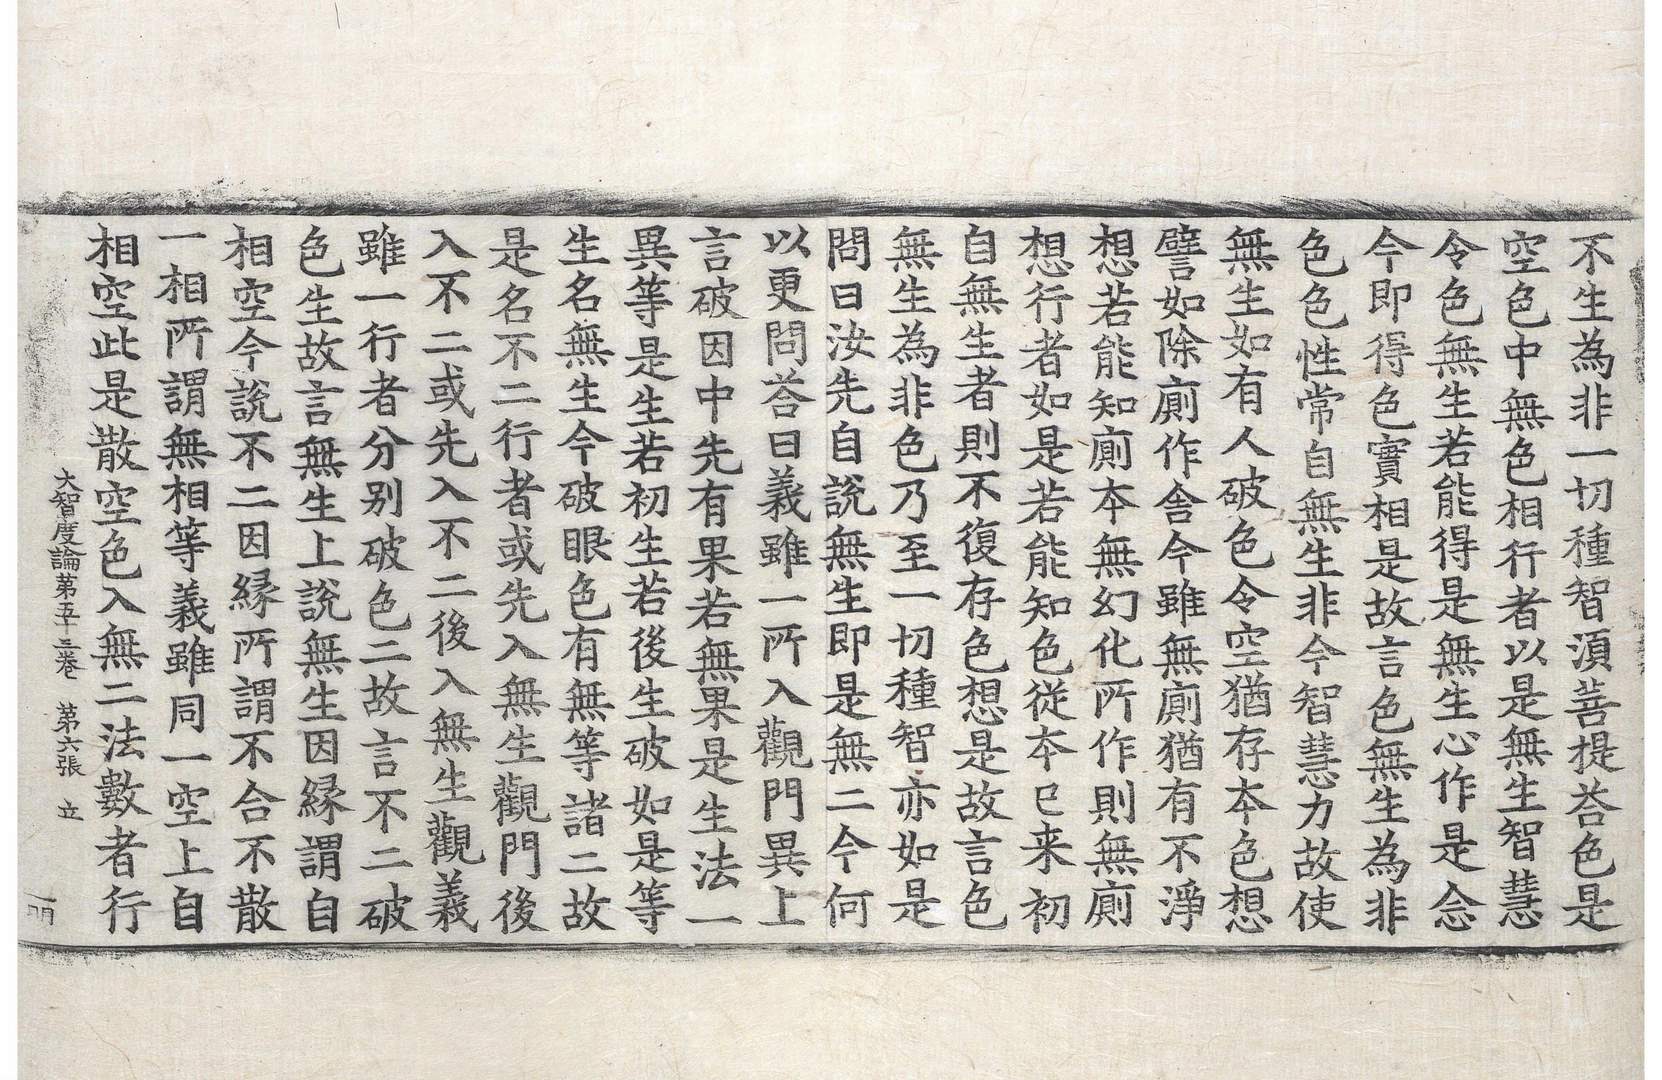 不生為非一切種智湏菩提荅色是
空色中無色相行者以是無生智慧
令色無生若能得是無生心作是念
今即得色實相是故言色無生為非
色色性常自無生非今智慧力故使
無生如有人破色令空猶存本色想
譬如除廁作舎今雖無廁猶有不淨
想若能知廁本無幻化所作則無廁
想行者如是若能知色從本已来初
自無生者則不復存色想是故言色
無生為非色乃至一切種智亦如是
問曰汝先自說無生即是無二今何
以更問荅曰義雖一所入觀門異上
言破因中先有果若無果是生法一
異等是生若初生若後生破如是等
生名無生今破眼色有無等諸二故
是名不二行者或先入無生觀門後
入不二或先入不二後入無生觀義
雖一行者分别破色二故言不二破
色生故言無生上說無生因縁謂自
相空今說不二因縁所謂不合不散
一相所謂無相等義雖同一空上自
相空此是散空色入無二法數者行
大智度論第五十三卷 第六張 立